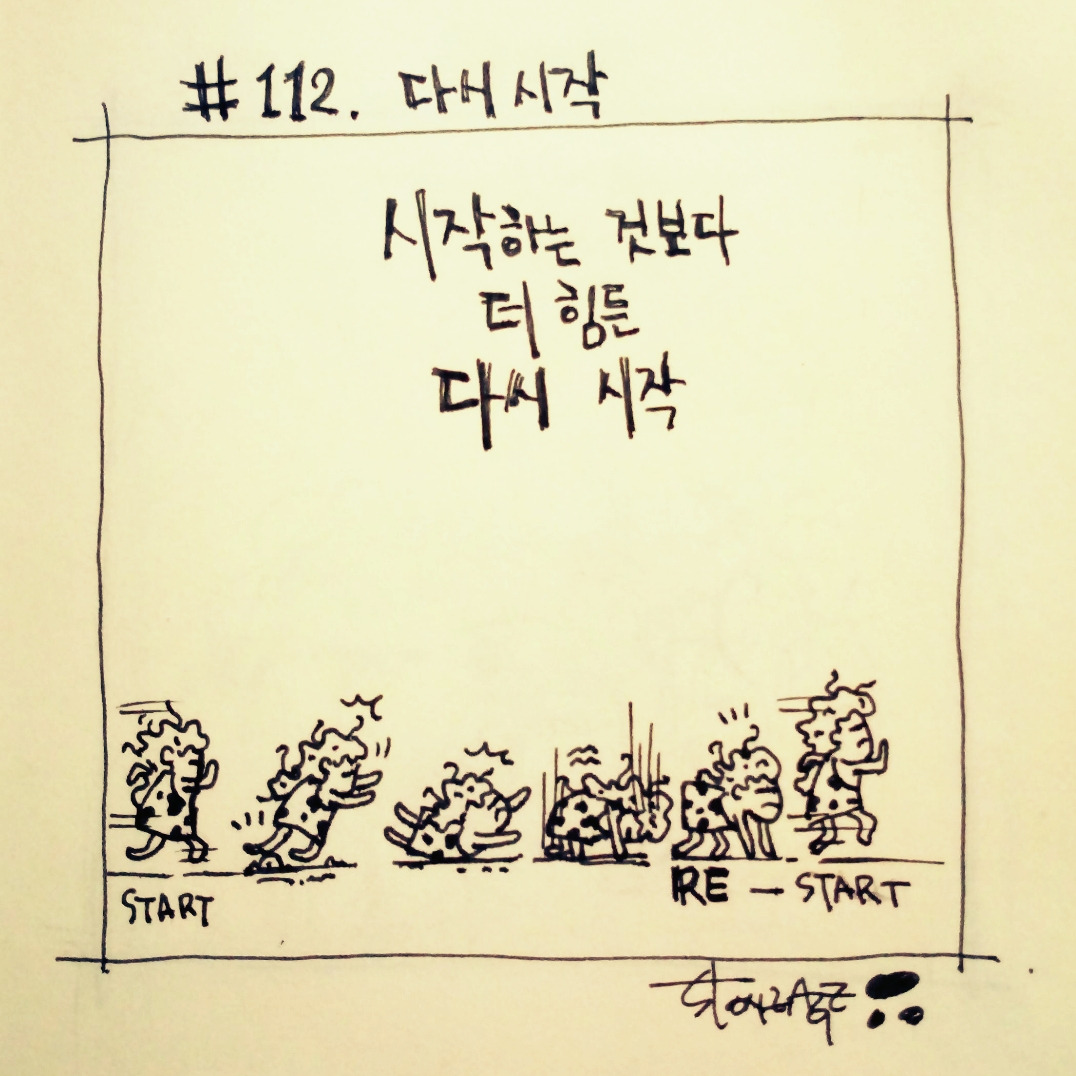 #112. 다시 시작
시작하는 것보다
더 힘든
다시 시작
START
RE → START